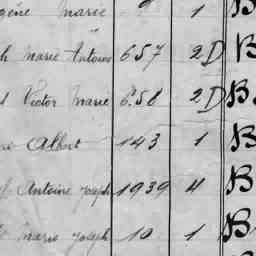 gène Marie 1 B
h Marie Antoine 657 2 D B
d Victor Marie 658 2 D B
Albert 143 1 B
f Antoine Joseph 1939 4 B
Marie Joseph 10 1 B